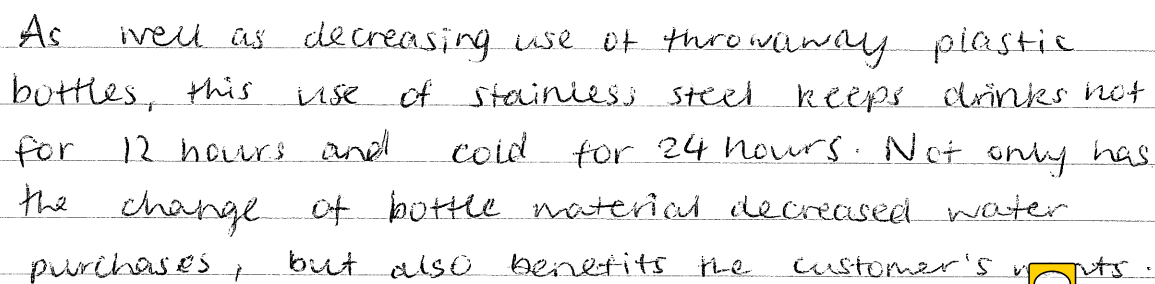 As well as decreasing use of throwaway plastic
bottles, this use of stainless steel keeps drinks hot
for 12 hours and cold for 24 hours. Not only has
the change of bottle material decreased water
purchases, but also benefits the customer's